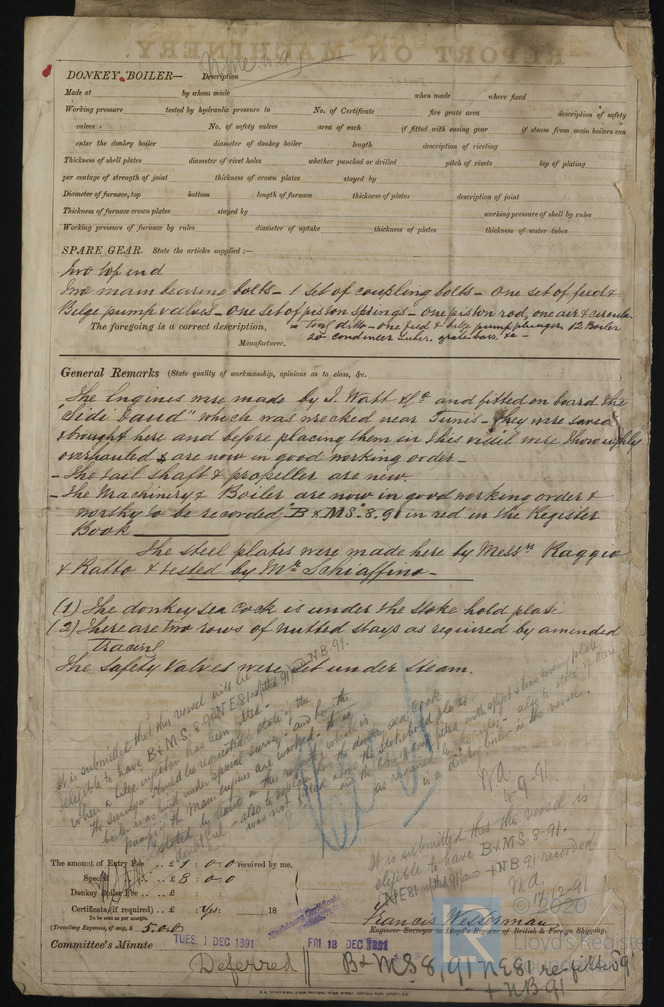 DONKEY BOILER— Description
Made at by whom made when made where fixed
Working pressure tested by hydraulic pressure to No. of Certificate fire grate area description of safety
valves No. of safety valves area of each if fitted with easing gear if steam from main boilers can
enter the donkey boiler diameter of donkey boiler length description of riveting
Thickness of shell plates diameter of rivet holes whether punched or drilled pitch of rivets lap of plating
per centage of strength of joint thickness of crown plates stayed by
Diameter of furnace, top bottom length of furnace thickness of plates description of joint
Thickness of furnace crown plates stayed by working pressure of shell by rules
Working pressure of furnace by rules diameter of uptake thickness of plates thickness of water tubes
SPARE GEAR. State the articles supplied:—
Two top end
Two main bearing bolts – 1 set of coupling bolts – One set of feed &
Bilge pump valves – One set of piston springs – One piston rod, one air & circula-
The foregoing is a correct description, – ting ditto – one feed & bilge pump plunger 12 Boiler
Manufacturer. 20 condenser tubes, gratebars &c –
General Remarks (State quality of workmanship, opinions as to class, &c.
The Engines were made by J. Watt & Co and fitted on board the
which was wrecked near Tunis – they were saved
& brought here and before placing them in this vessel were thoroughly
overhauled & are now in good working order –
– The tail shaft & propeller are new.
– The Machinery & Boiler are now in good working order &
worthy to be recorded B & M.S. 8.91 in red in the Register
Book
The steel plates were made here by Messrs Raggio
& Ratto & tested by Mr Schiaffino –
(1) The donkey sea cock is under the stoke hold plate
(2) There are two rows of nutted stays as required by amended
tracing
The Safety Valves were set under steam.
It is submitted that this vessel will be
eligible to have B&M.S. 8-91 & N.E 81 refitted 91 & N.B 91.
when a bilge injector has been fitted –
The surveyor should be requested to state if the
boiler was built under special survey, and how the
pumps of the main engines are worked – It is
is a donkey boiler in the vessel.
as required by the rules, – also to state if there
4-9-91
It is submitted that this vessel is
eligible to have B&M.S. 8-91.
N.E 81 refitted 91 and & N.B 91 recorded
16.12.91
The amount of Entry Fee .. £ 1 : 0 : 0 received by me,
Special .. £ 8 : 0 : 0
Donkey Boiler Fee .. £ : :
Certificate (if required) .. £ : Yes : 18
To be sent as per margin.
(Travelling Expenses, if any, £ 5.0.0)
Francis Westerman
Engineer-Surveyor to Lloyd's Register of British & Foreign Shipping.
Committee's Minute TUES. 1 DEC 1891 FRI 18 DEC 1891
Deferred B & M.S 8,91 N.E 81 refitted 91
& N.B 91
© 2020
Lloyd's Register
Foundation